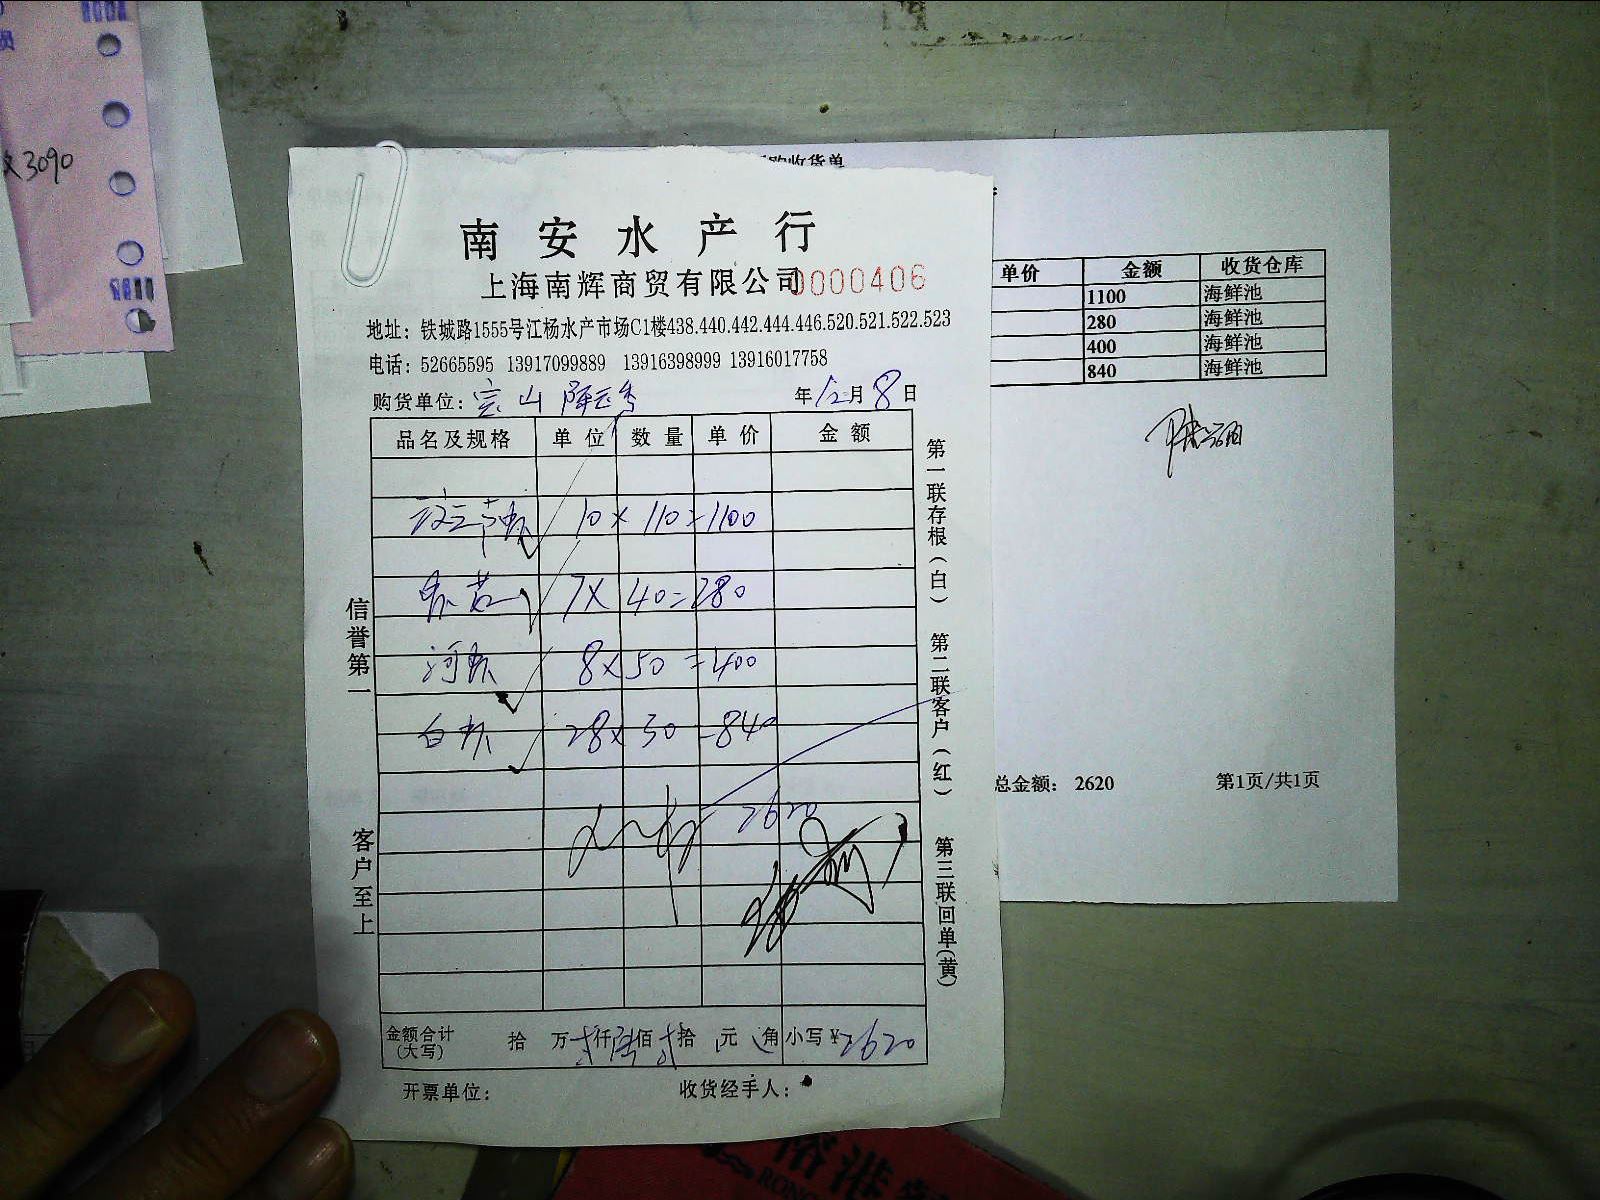 南安水产行
上海南辉商贸有限公司0000406
地址：铁城路1555号江杨水产市场C1楼438.440.442.444.446.520.521.522.523
电话：52665595 13917099889 13916398999 13916017758
购货单位：宝山 年12月8日
品名及规格 单位 数量 单价 金额
10×110=1100
7×40=280
河虾 8×50=400
白虾 28×30=840
2620
金额合计(大写) 拾 万 贰仟陆佰贰拾 元 角 小写¥2620
开票单位： 收货经手人：
信誉第一
客户至上
第一联存根(白) 第二联客户(红) 第三联回单(黄)
收货单
单价 金额 收货仓库
1100 海鲜池
280 海鲜池
400 海鲜池
840 海鲜池
总金额： 2620 第1页/共1页
3090